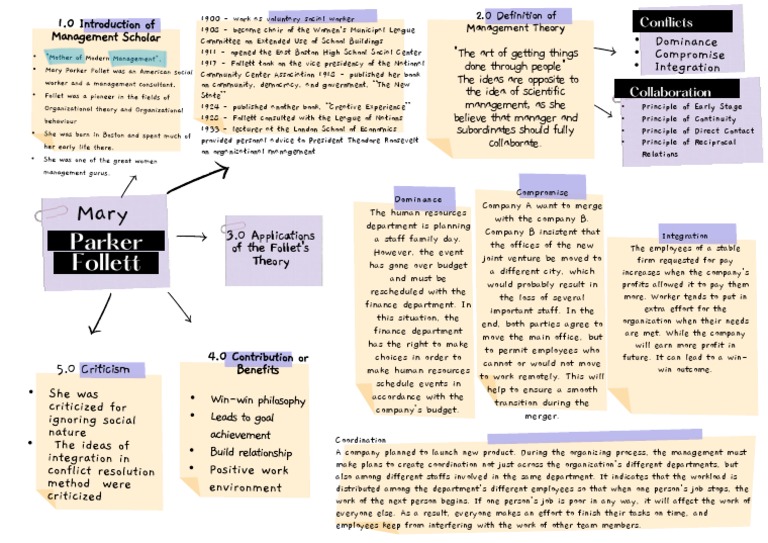 1.0 Introduction of
Management Scholar
"Mother of Modern Management".
Mary Parker Follet was an American social
worker and a management consultant.
Follet was a pioneer in the fields of
Organizational theory and Organizational
behaviour
She was born in Boston and spent much of
her early life there.
She was one of the great women
management gurus.
1900 - work as voluntary social worker
1908 - become chair of the Women's Municipal League
Committee on Extended Use of School Buildings
1911 - opened the East Boston High School Social Center
1917 - Follett took on the vice presidency of the National
Community Center Association 1918 - published her book
on community, democracy, and government, "The New
State"
1924 - published another book, "Creative Experience"
1928 - Follett consulted with the League of Nations
1933 - lecturer at the London School of Economics
provided personal advice to President Theodore Roosevelt
on organizational management
2.0 Definition of
Management Theory
"The art of getting things
done through people"
The ideas are opposite to
the idea of scientific
management, as she
believe that manager and
subordinates should fully
collaborate.
Conflicts
Dominance
Compromise
Integration
Collaboration
Principle of Early Stage
Principle of Continuity
Principle of Direct Contact
Principle of Reciprocal
Relations
Mary
Parker
Follett
3.0 Applications
of the Follet's
Theory
Dominance
The human resources
department is planning
a staff family day.
However, the event
has gone over budget
and must be
rescheduled with the
finance department. In
this situation, the
finance department
has the right to make
choices in order to
make human resources
schedule events in
accordance with the
company's budget.
Compromise
Company A want to merge
with the company B.
Company B insistent that
the offices of the new
joint venture be moved to
a different city, which
would probably result in
the loss of several
important staff. In the
end, both parties agree to
move the main office, but
to permit employees who
cannot or would not move
to work remotely. This will
help to ensure a smooth
transition during the
merger.
Integration
The employees of a stable
firm requested for pay
increases when the company's
profits allowed it to pay them
more. Worker tends to put in
extra effort for the
organization when their needs
are met. While the company
will earn more profit in
future. It can lead to a win-
win outcome.
5.0 Criticism
She was
criticized for
ignoring social
nature
The ideas of
integration in
conflict resolution
method were
criticized
4.0 Contribution or
Benefits
Win-win philosophy
Leads to goal
achievement
Build relationship
Positive work
environment
Coordination
A company planned to launch new product. During the organizing process, the management must
make plans to create coordination not just across the organization's different departments, but
also among different staffs involved in the same department. It indicates that the workload is
distributed among the department's different employees so that when one person's job stops, the
work of the next person begins. If one person's job is poor in any way, it will affect the work of
everyone else. As a result, everyone makes an effort to finish their tasks on time, and
employees keep from interfering with the work of other team members.